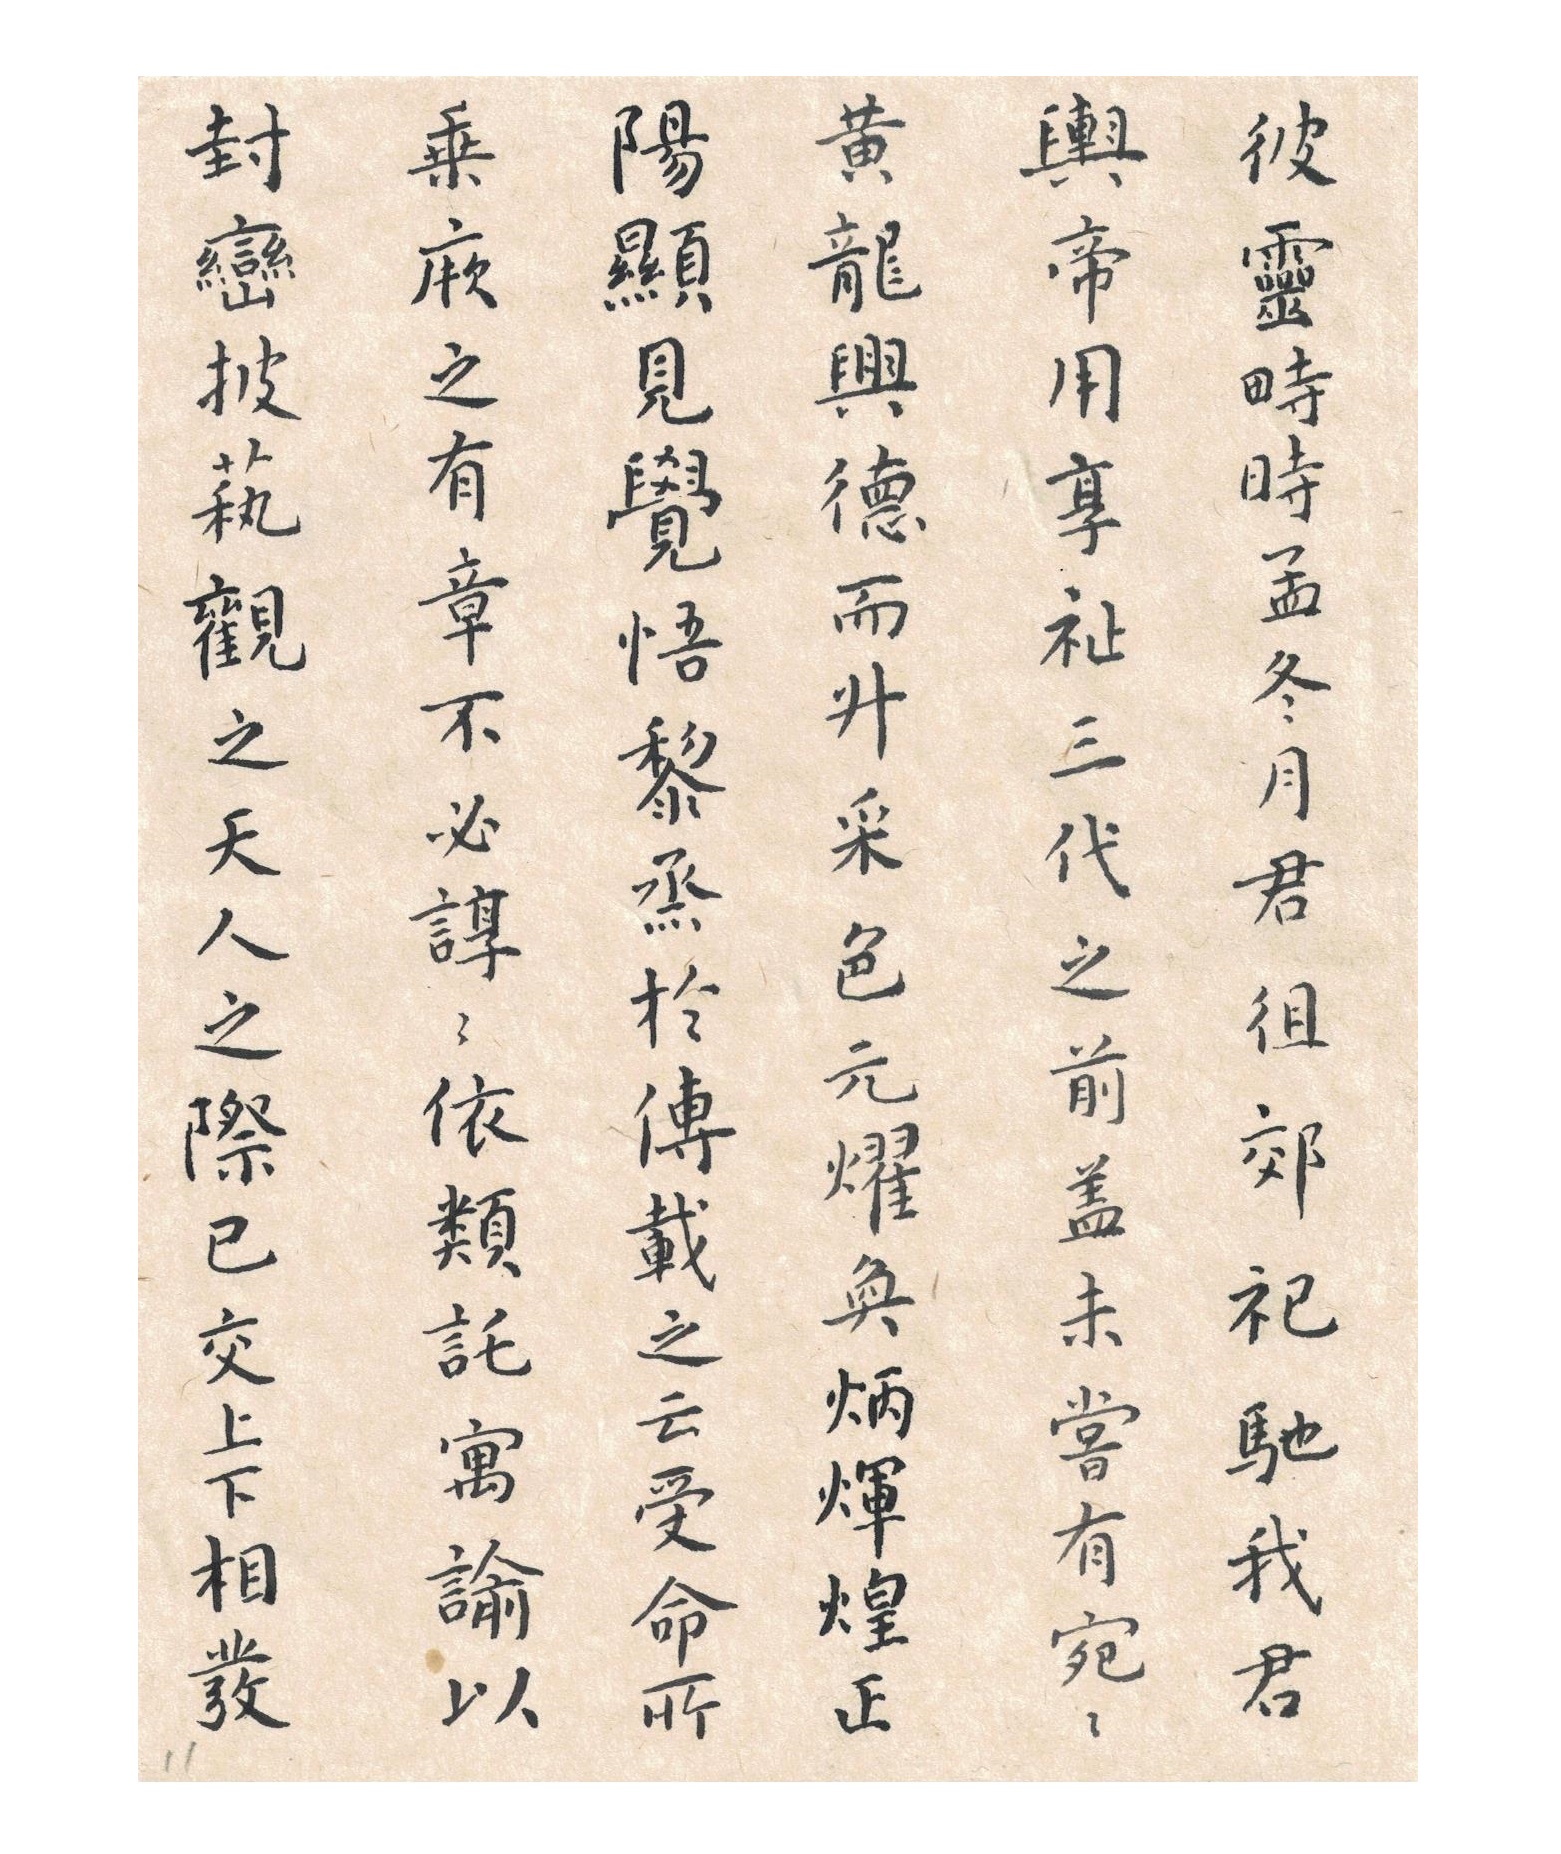 彼靈畤時孟冬月君徂郊祀馳我君
輿帝用享祉三代之前蓋未嘗有宛〻
黃龍興德而升采色元耀奐炳煇煌正
陽顯見覺悟黎烝於傳載之云受命所
乗厥之有章不必諄〻依類託寓諭以
封巒披藝觀之天人之際已交上下相發
11